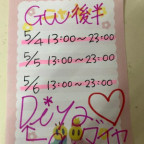 GW後半
5/4 13:00~23:00
5/5 13:00~23:00
5/6 13:00~23:00
Diva